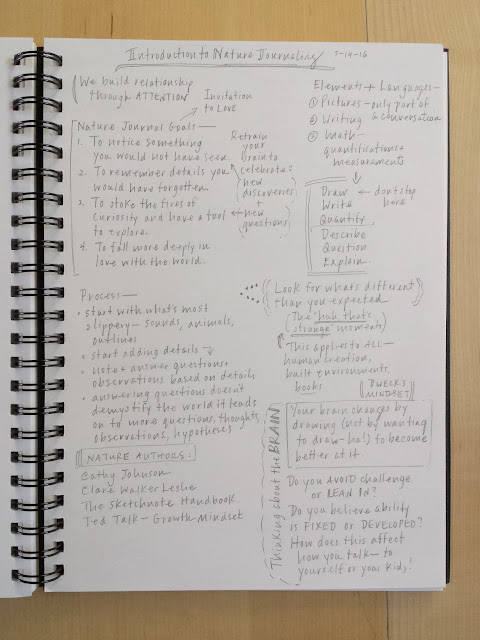 Introduction to Nature Journaling
7-14-16
We build relationship
through ATTENTION
Invitation
to LOVE
Nature Journal Goals—
1. To notice something
you would not have seen.
2. To remember details you
would have forgotten.
3. To stoke the fires of
curiosity and have a tool
to explore.
4. To fall more deeply in
love with the world.
Retrain
your
brain to
celebrate:
new
discoveries
+
new
questions
Elements + Languages—
① Pictures - only part of
a conversation
② Writing
③ Math—
quantifications +
measurements
Draw ← don't stop
here
Write
Quantify
Describe
Question
Explain
Process—
• start with what's most
slippery - sounds, animals,
outlines
• start adding details
• note + answer questions +
observations based on details
• answering questions doesn't
demystify the world it leads
on to more questions, thoughts,
observations, hypotheses
NATURE AUTHORS:
Cathy Johnson
Clare Walker Leslie
The Sketchnote Handbook
Ted Talk - Growth Mindset
Look for whats different
than you expected
The "huh that's
strange" moments
This applies to ALL—
human creation,
built environments,
books
DWECK'S
MINDSET
Thinking about the BRAIN
Your brain changes by
drawing (not by wanting
to draw - ha!) to become
better at it
Do you AVOID challenge
or LEAN IN?
Do you believe ability
is FIXED or DEVELOPED?
How does this affect
how you talk - to
yourself or your kids?